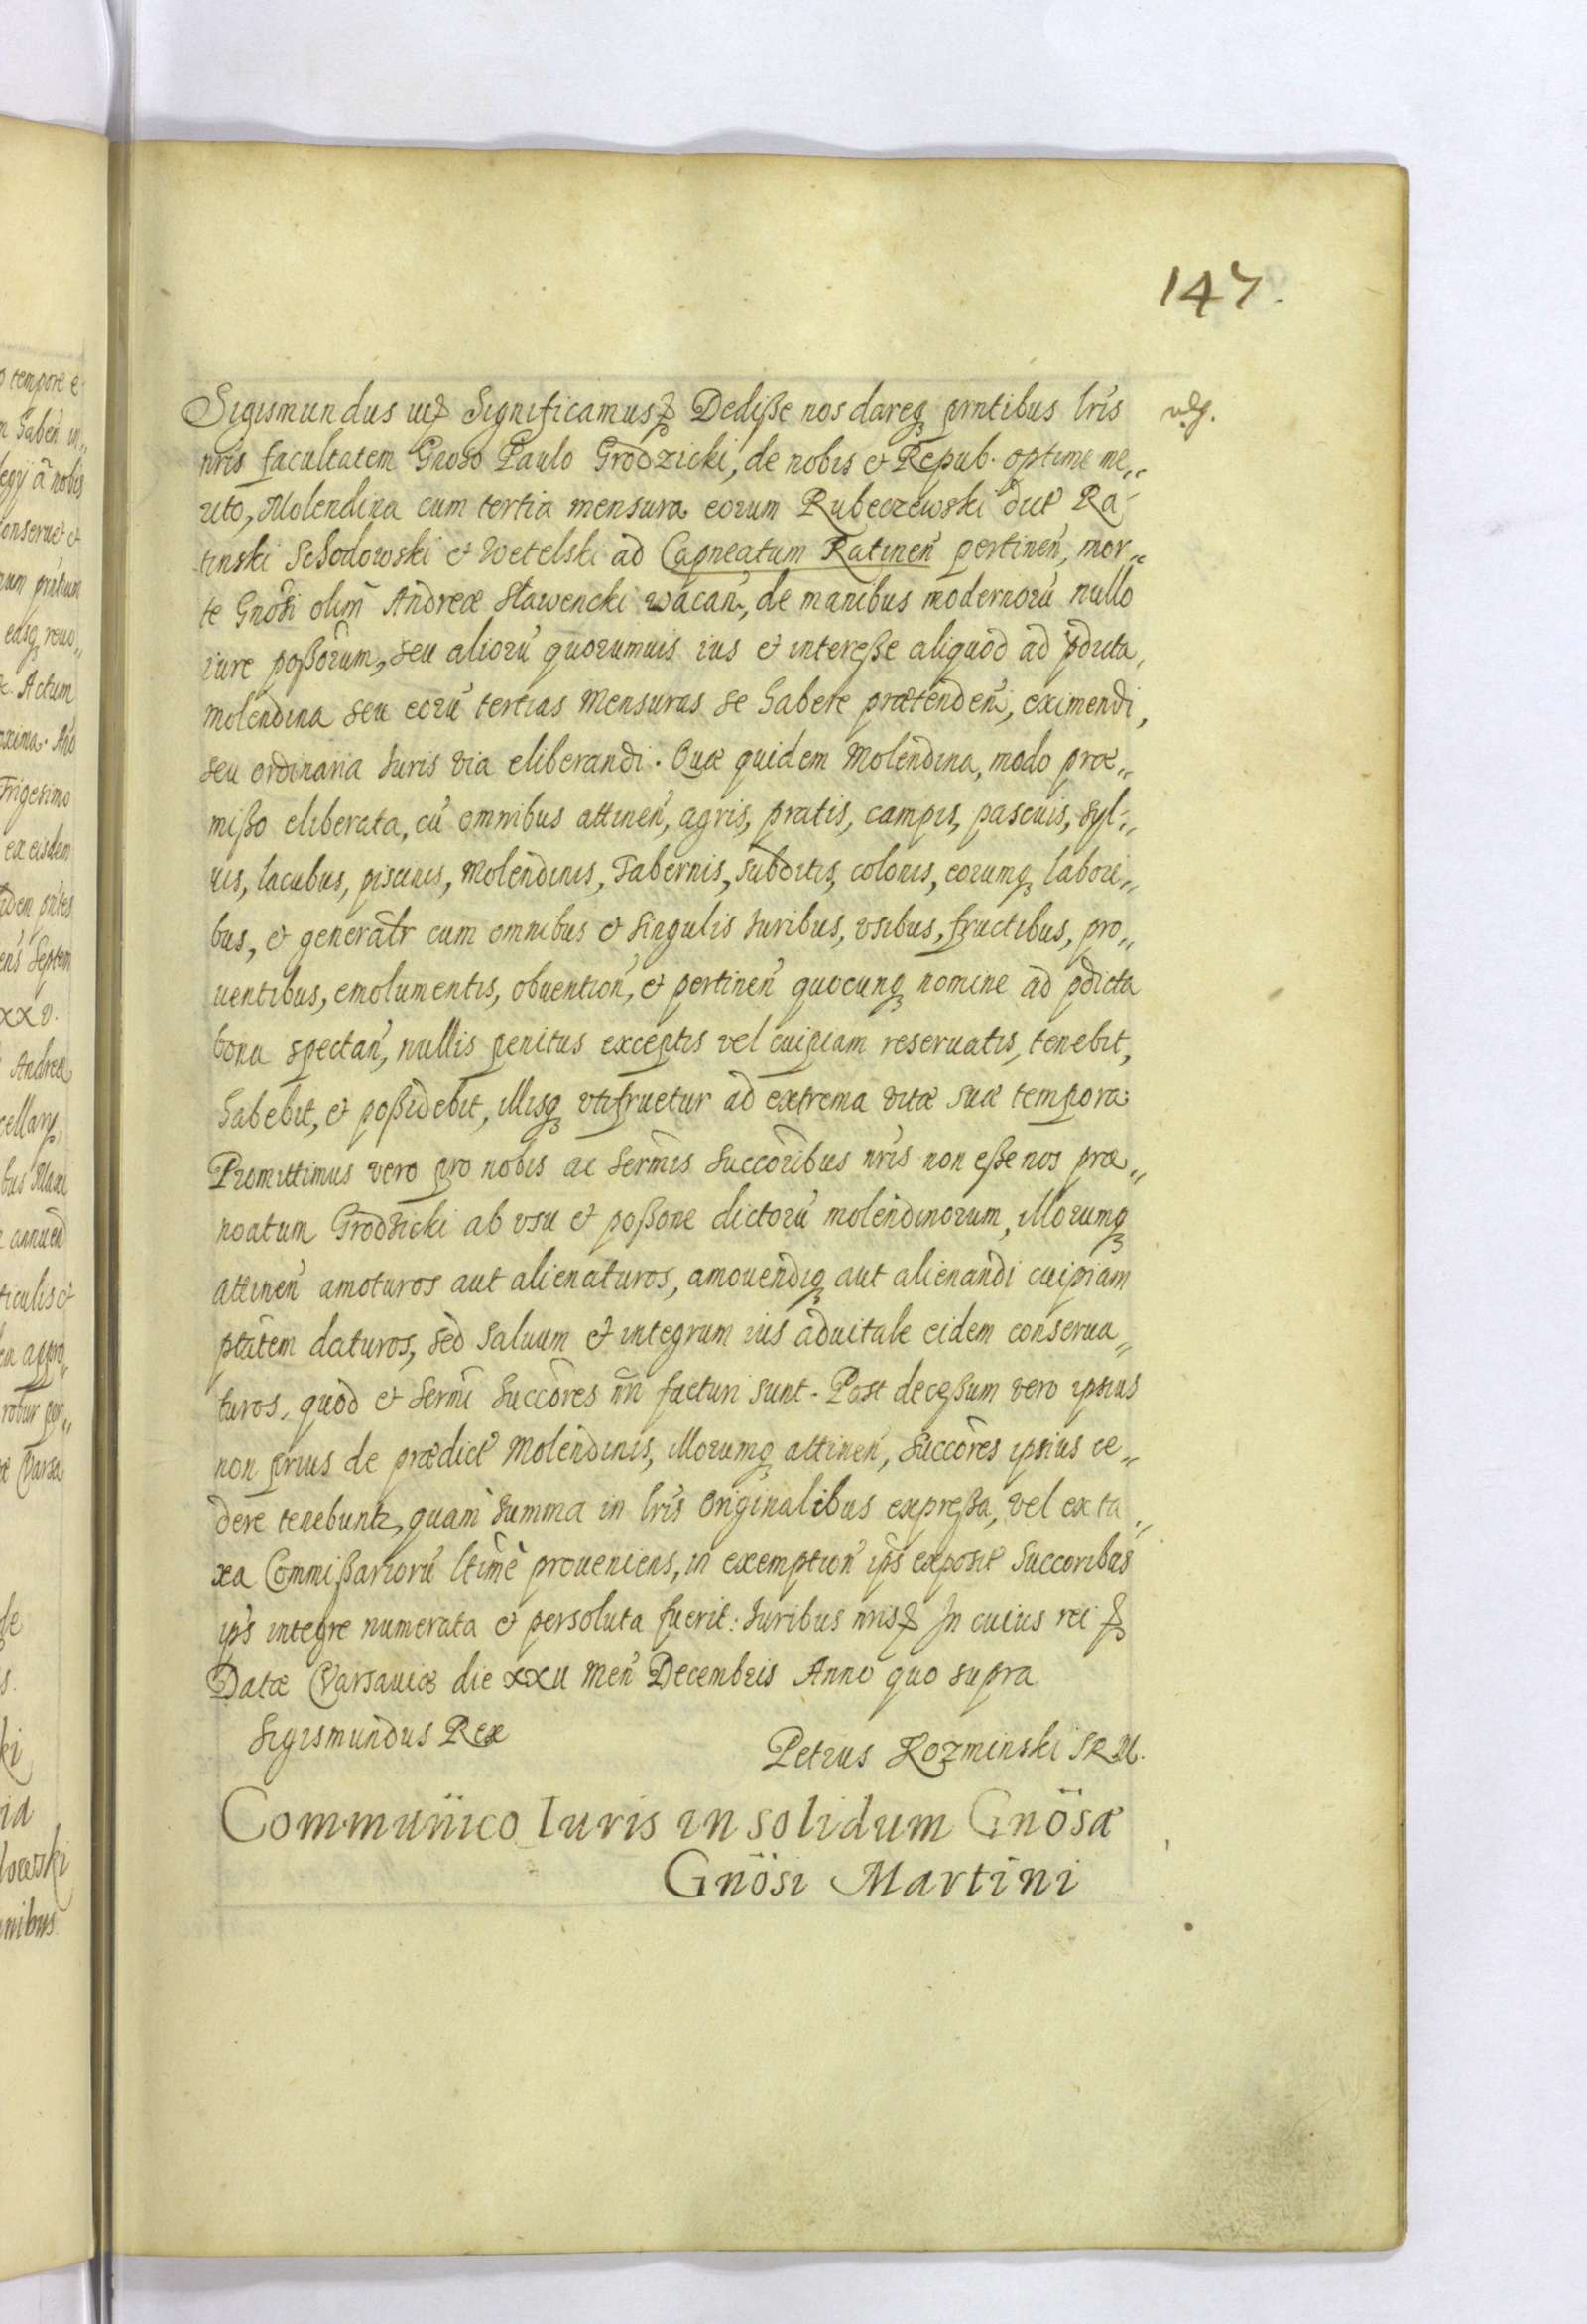 147.
Sigismundus etc Significamus etc Dediße nos dareq prntibus lris
nris facultatem Gnoso Paulo Grodzicki, de nobis et Repub. optime me„
rito, Molendina cum tertia mensura eorum Rubeczewski dict Ra-
tinski Schodowski et Wetelski ad Capneatum Ratinen pertinen, mor„
te Gnosi olim Andreæ Stawencki vacan, de manibus modernorū nullo
iure poßorum, seu aliorū quorumuis ius et intereße aliquod ad pdicta,
molendina seu eorū tertias mensuras se habere prætenden, eximendi,
seu ordinaria Iuris via eliberandi. Quæ quidem Molendina, modo præ„
mißo eliberata, cū omnibus attinen, agris, pratis, campis, pascuis, syl„
uis, lacubus, piscinis, Molendinis, Tabernis, subditis, colonis, eorumq labori„
bus, et generalr cum omnibus et singulis Iuribus, vsibus, fructibus, pro„
uentibus, emolumentis, obuention, et pertinen quocunq nomine ad pdicta
bona spectan, nullis penitus exceptis vel cuipiam reseruatis, tenebit,
habebit, et poßidebit, illisq vtifruetur ad extrema vitæ suæ tempora.
Promittimus vero pro nobis ac Sermis Succoribus nris non eße nos præ„
noatum Grodzicki ab vsu et poßone dictorū molendinorum, illorumq
attinen amoturos aut alienaturos, amouendiq aut alienandi cuipiam
ptatem daturos, sed saluum et integrum ius aduitale eidem conserua„
turos, quod et Sermi Succores nri facturi sunt. Post deceßum vero ipsius
non prius de prædict Molendinis, illorumq attinen, Succores ipsius ce„
dere tenebuntr, quam summa in lris Originalibus expreßa, vel ex ta„
xa Commißariorū ltime proueniens, in exemption ips exposit Succoribus
ips integre numerata et persoluta fuerit: Iuribus nris etc In cuius rei etc
Datæ Varsauiæ die XXII Men Decembris Anno quo supra
Sigismundus Rex
Petrus Kozminski SRM.
Communico Iuris in solidum Gnosæ
Gnosi Martini